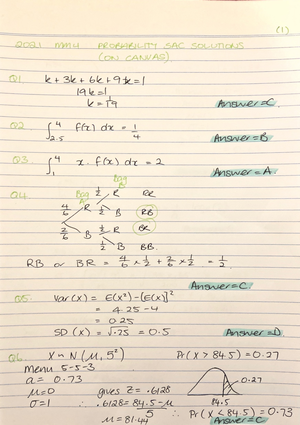 (1)
2021 MATH PROBABILITY SAC SOLUTIONS
(ON CANVAS)
Q1 k + 3k + 6k + 9k = 1
19k = 1
k = 1/19 Answer = C
Q2. ∫ 4 2.5 f(x) dx = 1/4
Answer = B
Q3. ∫ 4 1 x. f(x) dx = 2
Answer = A
Q4. Bag A Bag B
4/6 R 1/2 R RR
1/2 B RB
2/6 B 1/2 R BR
1/2 B BB.
RB or BR = 4/6 × 1/2 + 2/6 × 1/2 = 1/2.
Answer = C
Q5. Var(X) = E(X²) - [E(X)]²
= 4.25 - 4
= 0.25
SD (X) = √.75 = 0.5 Answer = D
Q6. X ~ N (μ, 5²) Pr (X > 84.5) = 0.27
menu 5-5-3
a = 0.73 0.27
μ = 0 gives Z = .6128
σ = 1 ∴ .6128 = 84.5 - μ / 5 84.5
μ = 81.44 ∴ Pr (X < 84.5) = 0.73
Answer = C